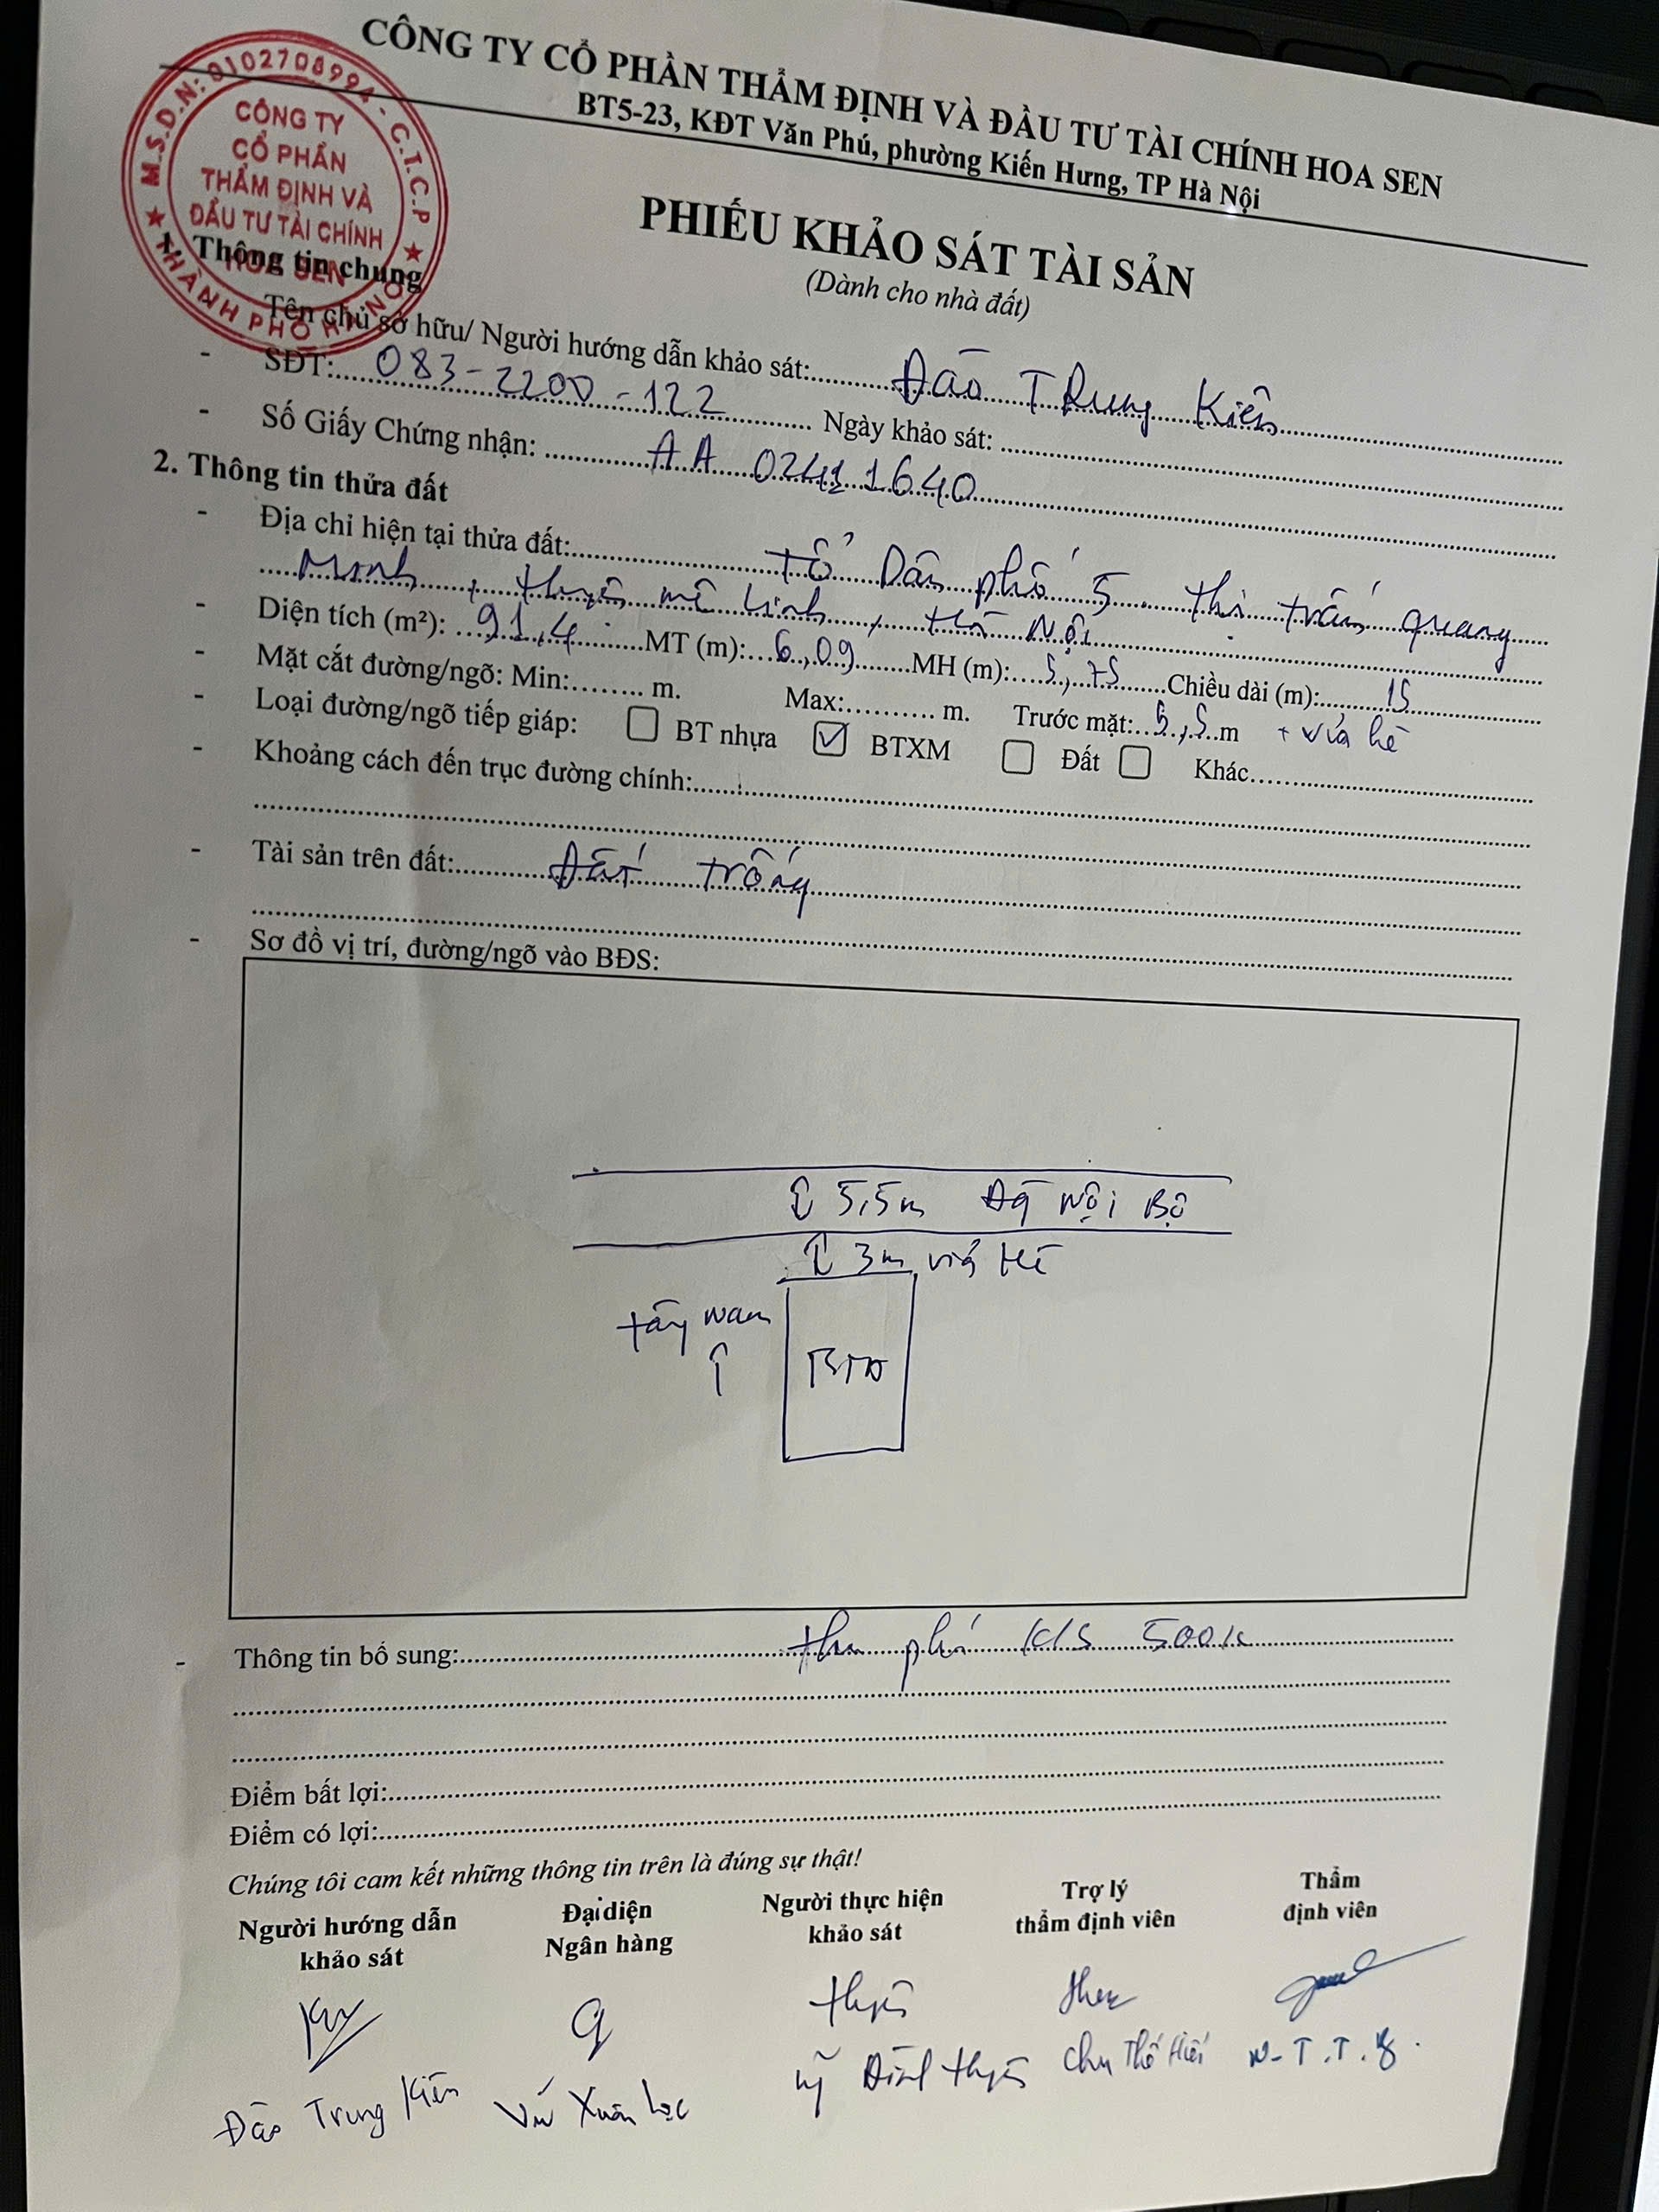 CÔNG TY CỔ PHẦN THẨM ĐỊNH VÀ ĐẦU TƯ TÀI CHÍNH HOA SEN
BT5-23, KĐT Văn Phú, phường Kiến Hưng, TP Hà Nội
M.S.D.N: 0102708994 - C.T.C.P
CÔNG TY
CỔ PHẦN
THẨM ĐỊNH VÀ
ĐẦU TƯ TÀI CHÍNH
HOA SEN
THÀNH PHỐ HÀ NỘI
PHIẾU KHẢO SÁT TÀI SẢN
(Dành cho nhà đất)
1. Thông tin chung
Tên chủ sở hữu/ Người hướng dẫn khảo sát: Đào Trung Kiên
- SĐT: 083-2200-122 Ngày khảo sát:
- Số Giấy Chứng nhận: AA 02411640
2. Thông tin thửa đất
- Địa chỉ hiện tại thửa đất: Tổ Dân phố 5 thị trấn quang
Minh, huyện mê Linh, Hà Nội
- Diện tích (m²): 91,4 MT (m): 6,09 MH (m): 5,75 Chiều dài (m): 15
- Mặt cắt đường/ngõ: Min: m. Max: m. Trước mặt: 5,5 m + vỉa hè
- Loại đường/ngõ tiếp giáp: BT nhựa ☑ BTXM Đất Khác
- Khoảng cách đến trục đường chính:
- Tài sản trên đất: Đất trống
- Sơ đồ vị trí, đường/ngõ vào BĐS:
5,5m Đg Nội Bộ
3m vỉa Hè
tây nam
BTĐ
- Thông tin bổ sung: thu phí K/S 500k
Điểm bất lợi:
Điểm có lợi:
Chúng tôi cam kết những thông tin trên là đúng sự thật!
Người hướng dẫn khảo sát
Đại diện Ngân hàng
Người thực hiện khảo sát
Trợ lý thẩm định viên
Thẩm định viên
Đào Trung Kiên
Xuân Lộc
Đình
Chu Thế
N-T.T.